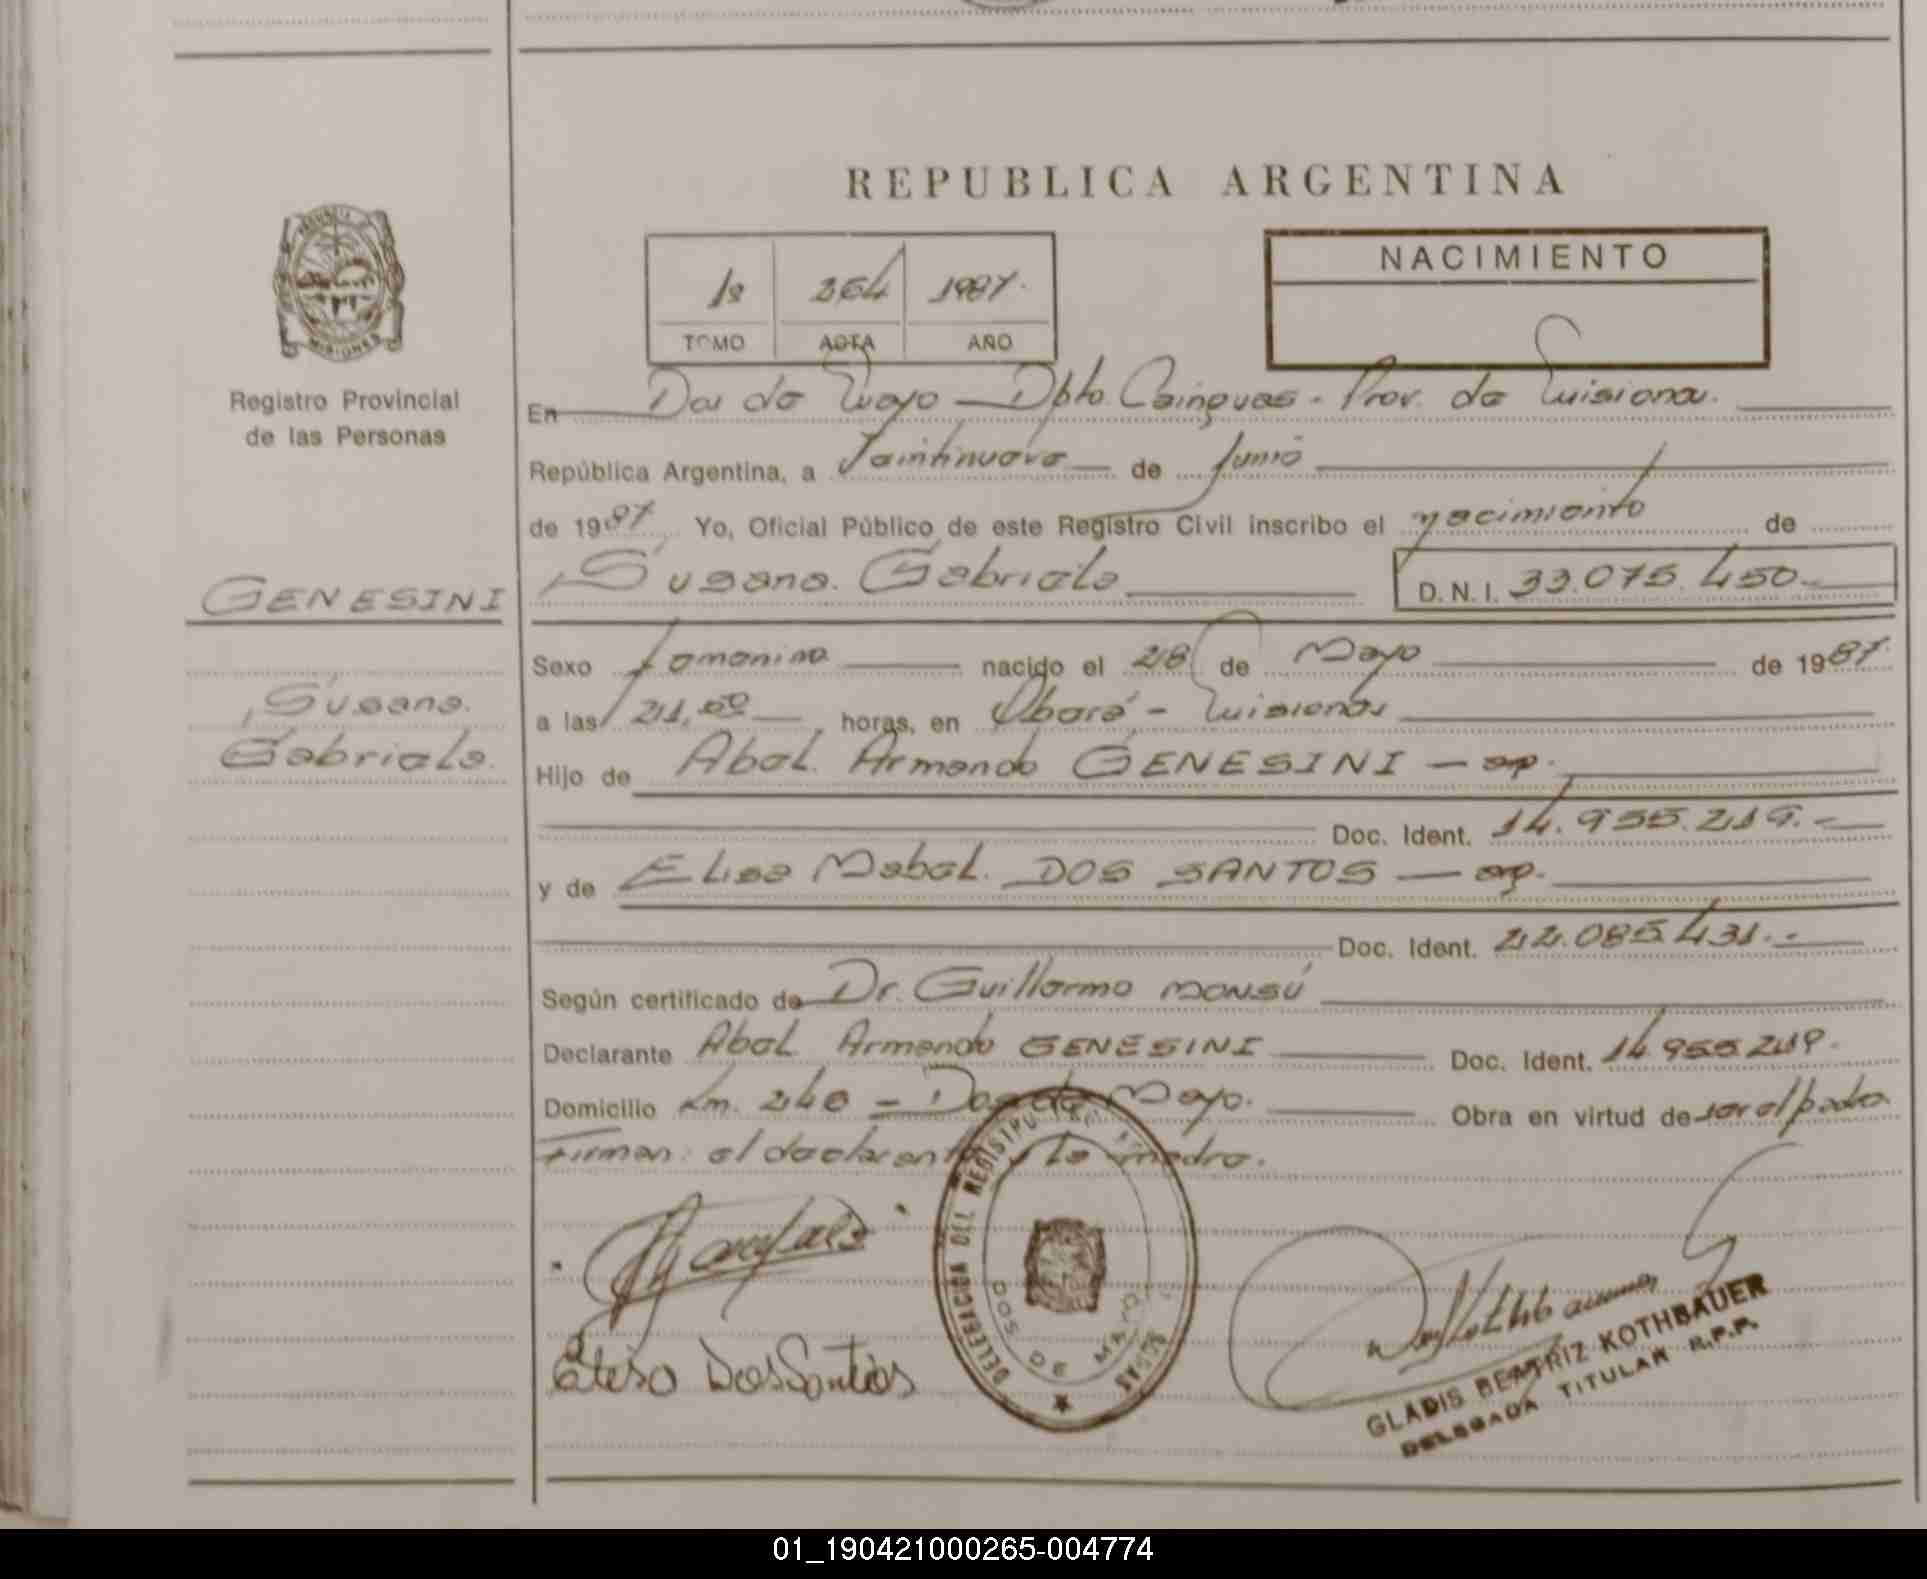 REPUBLICA ARGENTINA
MISIONES
Registro Provincial
de las Personas
1º 264 1987.
TOMO ACTA AÑO
NACIMIENTO
En Dos de Mayo — Dpto. Cainguas - Prov. de Misiones.
República Argentina, a Veintinueve de Junio
de 1987 Yo, Oficial Público de este Registro Civil inscribo el nacimiento de
GENESINI
Susana Gabriela D.N.I. 33.075.450.-
Susana
Gabriela.
Sexo Femenino nacido el 28 de Mayo de 1987.
a las 21,00 horas, en Oberá - Misiones
Hijo de Abel Armando GENESINI — ap.
Doc. Ident. 14.955.219.-
y de Elisa Mabel DOS SANTOS — ap.
Doc. Ident. 22.085.431.-
Según certificado de Dr. Guillermo MONSÚ
Declarante Abel Armando GENESINI Doc. Ident. 14.955.219.
Domicilio Km. 240 - Dos de Mayo. Obra en virtud de ser el padre
Firman: el declarante y la madre.
DELEGACION DEL REGISTRO
DOS DE MAYO
Eleisa Dos Santos
GLADIS BEATRIZ KOTHBAUER
DELEGADA TITULAR R.P.P.
01_190421000265-004774